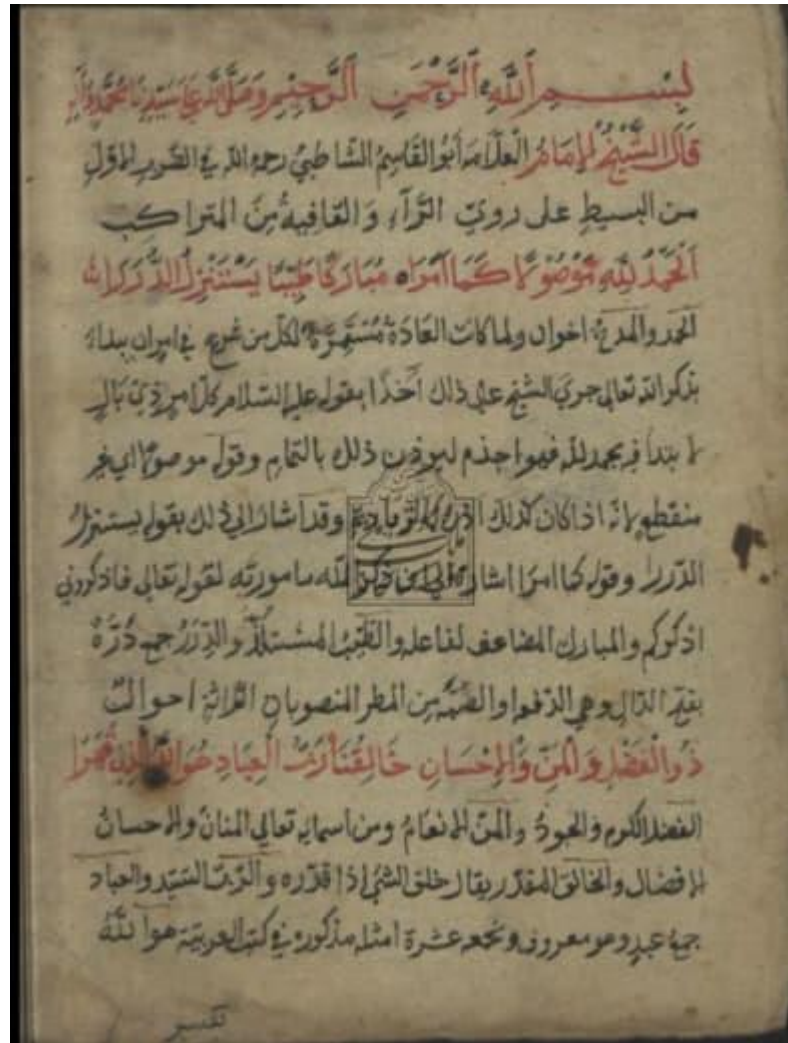 بِسْمِ ٱللَّهِ ٱلرَّحْمَٰنِ ٱلرَّحِيمِ وَصَلَّى اللَّهُ عَلَى سَيِّدِنَا مُحَمَّدٍ وَآلِهِ
قَالَ الشَّيْخُ الإِمَامُ الْعَلَّامَةُ أَبُو الْقَاسِمِ الشَّاطِبِيُّ رحمه الله في الضرب الأول
من البسيط على رويّ الرَّاءِ وَالقَافِيةُ مِنَ المتراكب
اَلْحَمْدُ لِلَّهِ مَوْصُولًا كَمَا أَمَرَا مُبَارَكًا طَيِّبًا يَسْتَنْزِلُ الدُّرَرَا
الحمد والمدح اخوان ولما كانت العَادَةُ مُسْتَمِرَّةً لكل من شرع في امر ان يبداء
بذكر الله تعالى جرى الشيخ على ذلك اخذًا بقوله عليه السّلام كلّ امرٍ ذي بال
لا يبدأ فيه بحمد لله فهو اجذم ليوذن ذلك بالتمام وقوله موصولًا اي غير
منقطع لانّه اذا كان كذلك بالزيادة وقد اشار الى ذلك بقوله يستنزل
الدّررا وقوله كما امرا اشارة الى ان ذكر الله مامور به لقوله تعالى فاذكروني
اذكركم والمبارك المضاعف لفاعله والطَّيِّبُ المستلذّ والدِّرَرُ جمع دِرَّةٌ
الدّال وهي والصَّبَّة من المطر المنصوبات الثلاثة احوالٌ
ذُو الْفَضْلِ وَالْمَنِّ وَالْإِحْسَانِ خَالِقُنَا رَبُّ الْعِبَادِ هُوَ اللَّهُ الَّذِي قَهَرَا
الفضل الكرم والجودُ والمنّ الإنعامُ ومن اسمايه تعالى المنان والإحسانُ
الإفضال والخالق المقدّر يقال خلق الشيْ اذا قدّره والرّبّ السّيّد والعباد
جمع عبدٍ وهو معروف عشرة امثلة مذكورة في كتب العربيّة هو اللهُ
تفسير